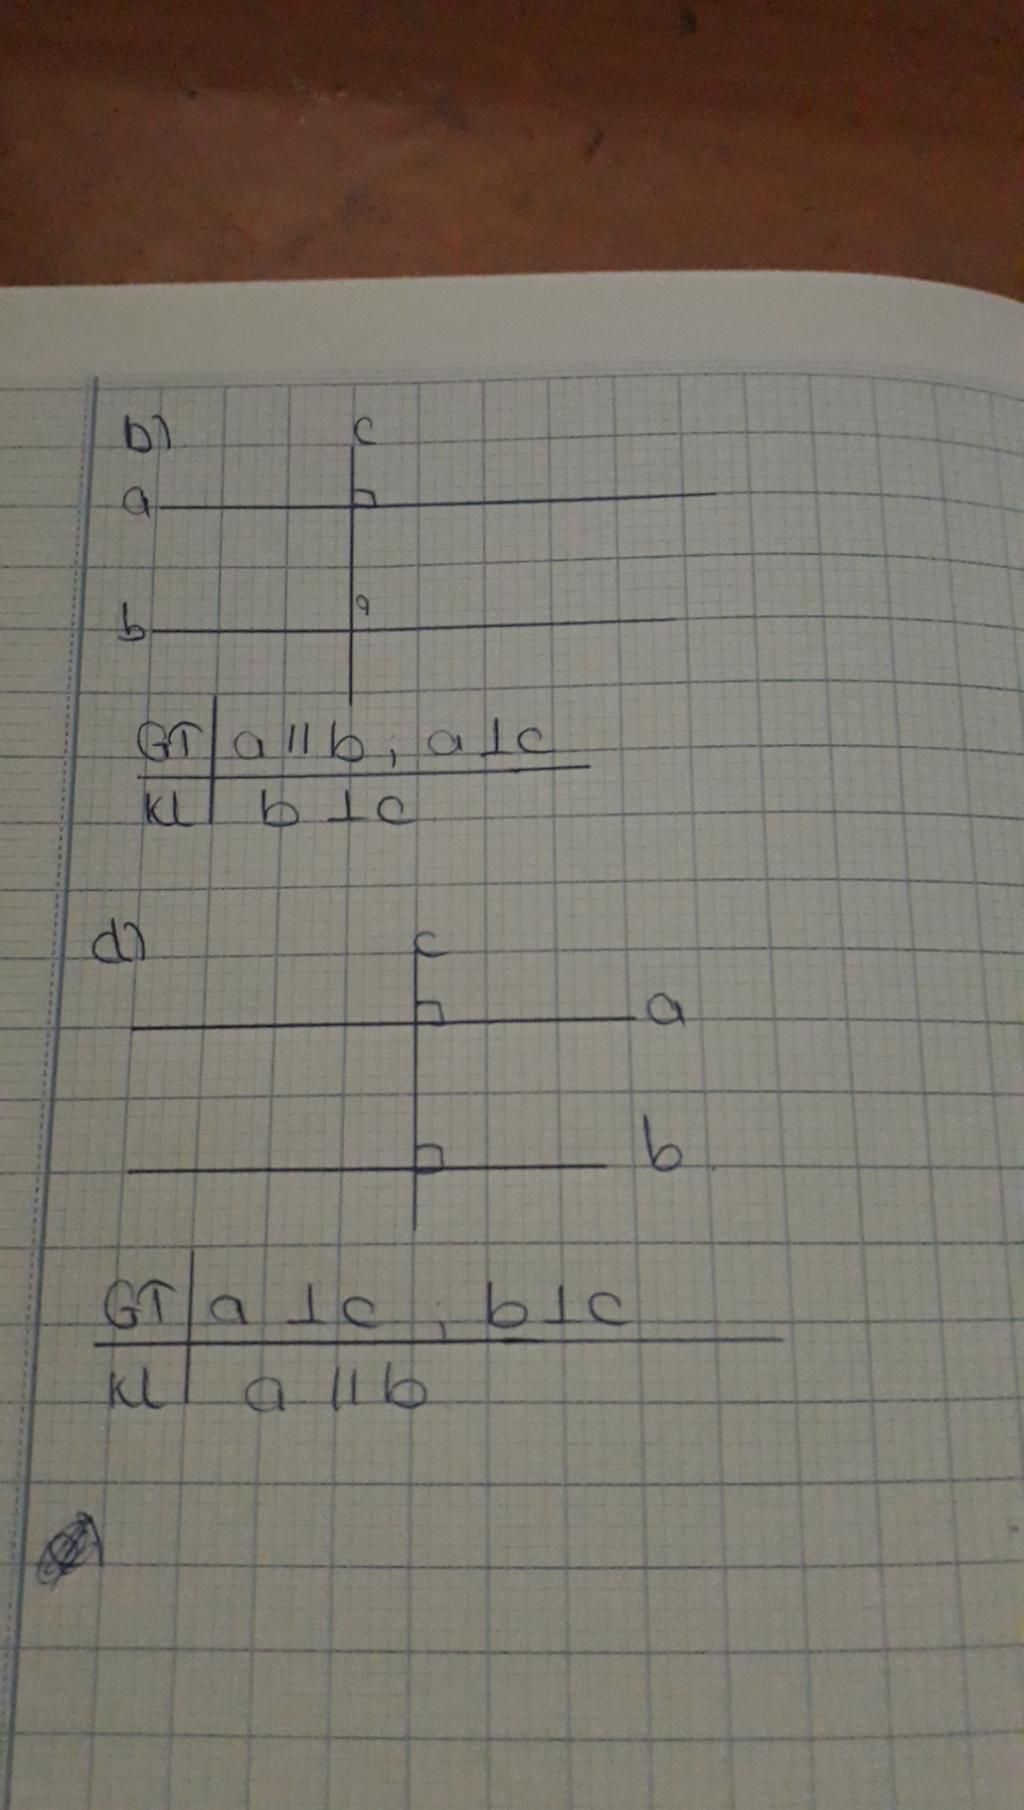 b)
c
a
a
b
GT a // b ; a ⊥ c
KL b ⊥ c
d)
c
a
b
GT a ⊥ c ; b ⊥ c
KL a // b